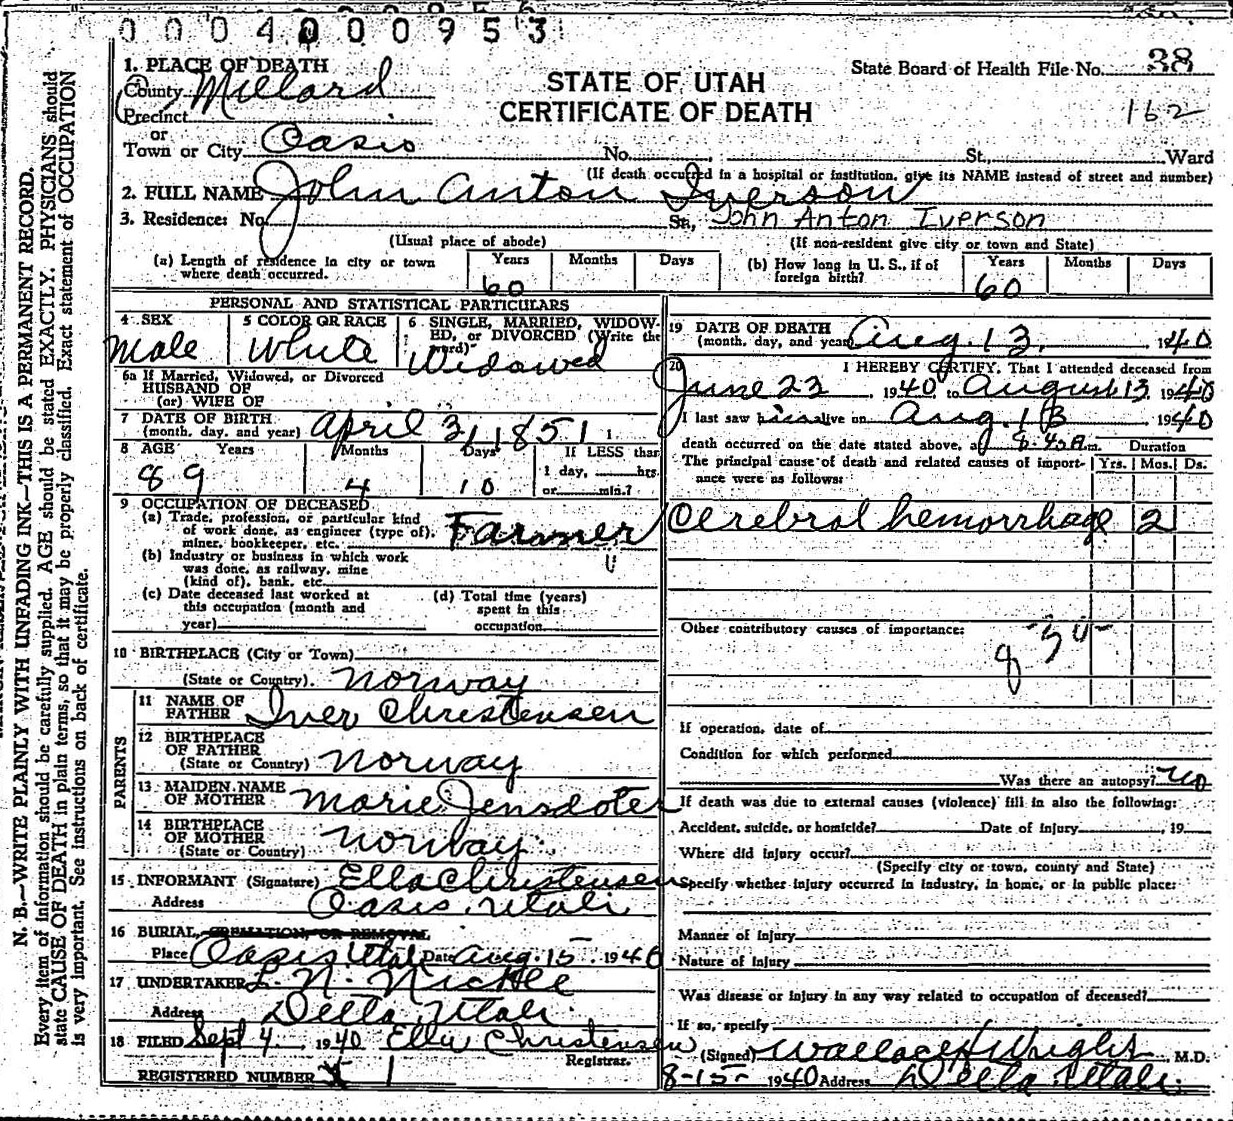 0004000953
1. PLACE OF DEATH
County Millard
Precinct
or
Town or City Oasis No. St., Ward
STATE OF UTAH
CERTIFICATE OF DEATH
State Board of Health File No. 38
162
(If death occurred in a hospital or institution, give its NAME instead of street and number)
2. FULL NAME John Anton Iverson
3. Residence: No. St., John Anton Iverson
(Usual place of abode) (If non-resident give city or town and State)
(a) Length of residence in city or town where death occurred. Years 60 Months Days
(b) How long in U. S., if of foreign birth? Years 60 Months Days
PERSONAL AND STATISTICAL PARTICULARS
4 SEX Male
5 COLOR OR RACE White
6 SINGLE, MARRIED, WIDOWED, or DIVORCED (Write the word) Widowed
6a If Married, Widowed, or Divorced
HUSBAND OF
(or) WIFE OF
7 DATE OF BIRTH
(month, day, and year) April 3, 1851
8 AGE Years 89 Months 4 Days 10 If LESS than
1 day, hrs.
or min.?
9 OCCUPATION OF DECEASED
(a) Trade, profession, or particular kind
of work done, as engineer (type of),
miner, bookkeeper, etc. Farmer
(b) Industry or business in which work
was done, as railway, mine
(kind of), bank, etc. "
(c) Date deceased last worked at
this occupation (month and
year)
(d) Total time (years)
spent in this
occupation
10 BIRTHPLACE (City or Town)
(State or Country). Norway
PARENTS
11 NAME OF
FATHER Iver Christensen
12 BIRTHPLACE
OF FATHER
(State or Country) Norway
13 MAIDEN NAME
OF MOTHER Marie Jensdoter
14 BIRTHPLACE
OF MOTHER
(State or Country) Norway
15 INFORMANT (Signature) Ella Christensen
Address Oasis, Utah
16 BURIAL, CREMATION, OR REMOVAL
Place Oasis Utah Date Aug. 15 1940
17 UNDERTAKER L. N. Nickle
Address Delta Utah
18 FILED Sept 4 1940 Ella Christensen
Registrar.
REGISTERED NUMBER 1
19 DATE OF DEATH
(month, day, and year) Aug. 13, 1940
20 I HEREBY CERTIFY, That I attended deceased from
June 23, 1940 to August 13 1940
I last saw him alive on Aug. 13 1940
death occurred on the date stated above, at 8:45 A.m. Duration
The principal cause of death and related causes of importance were as follows: Yrs. Mos. Ds.
Cerebral hemorrhage 2
Other contributory causes of importance:
If operation, date of
Condition for which performed
Was there an autopsy? no
If death was due to external causes (violence) fill in also the following:
Accident, suicide, or homicide? Date of injury , 19
Where did injury occur?
(Specify city or town, county and State)
Specify whether injury occurred in industry, in home, or in public place:
Manner of injury
Nature of injury
Was disease or injury in any way related to occupation of deceased?
If so, specify
(Signed) Wallace Wright, M.D.
8-15- 1940 Address Delta Utah.
N. B.—WRITE PLAINLY WITH UNFADING INK—THIS IS A PERMANENT RECORD.
Every item of information should be carefully supplied. AGE should be stated EXACTLY. PHYSICIANS should
state CAUSE OF DEATH in plain terms, so that it may be properly classified. Exact statement of OCCUPATION
is very important. See instructions on back of certificate.